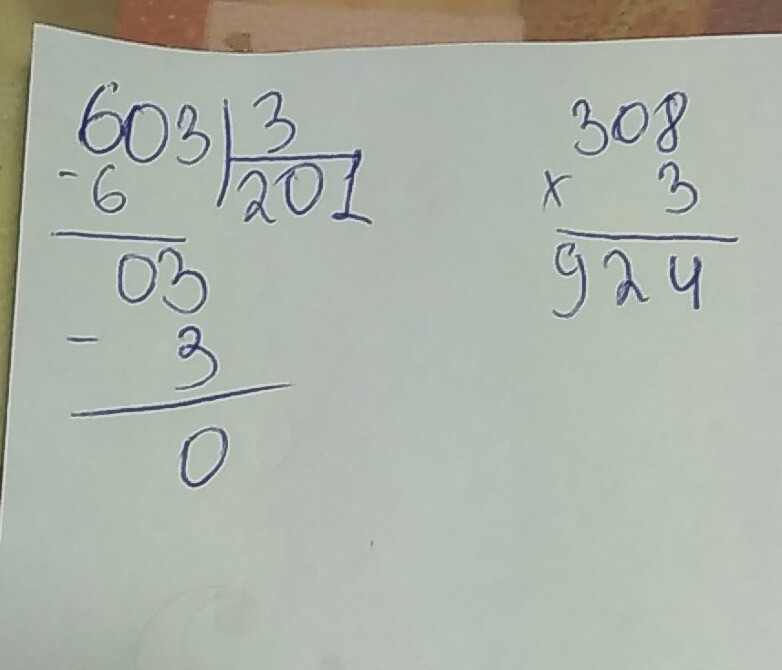 603 3
- 6 201
03
- 3
0
308
x 3
924